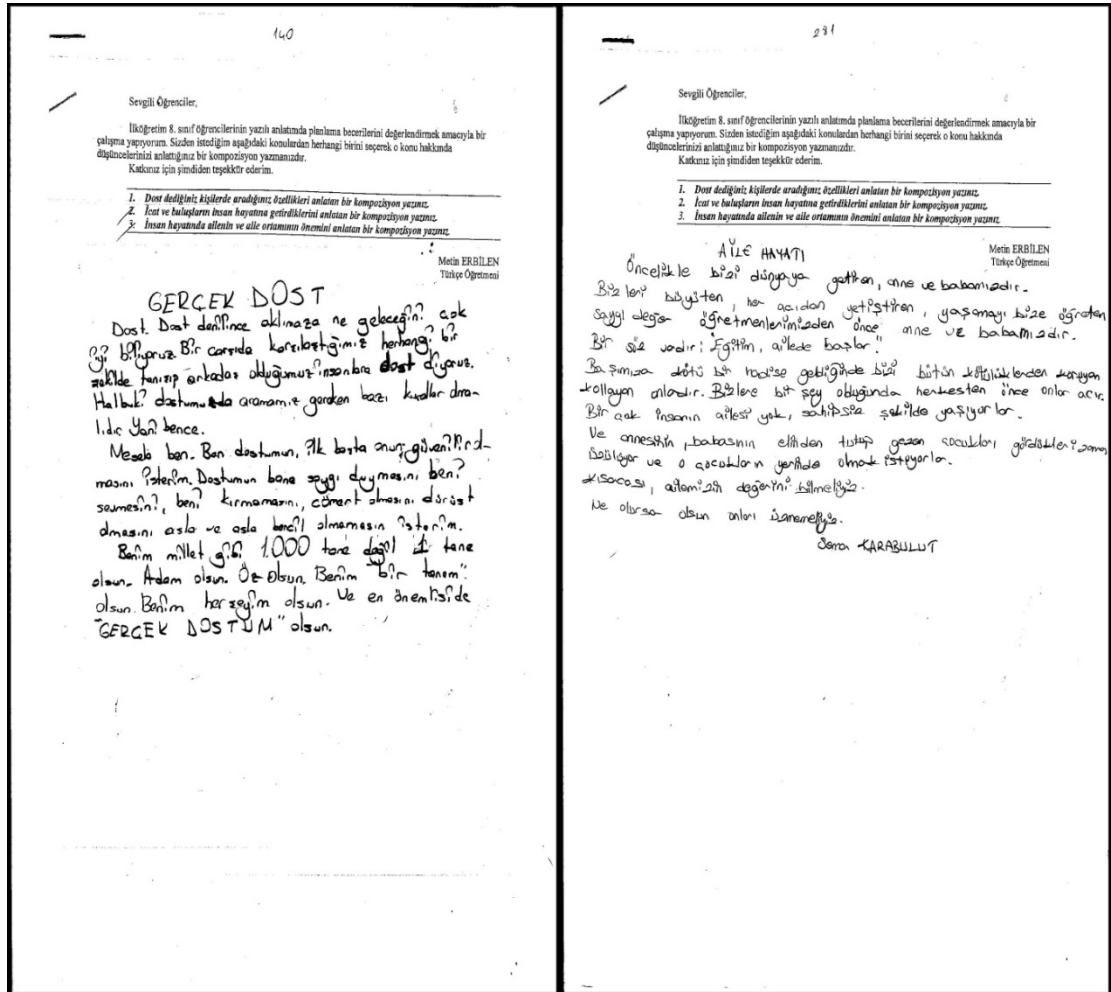 140
Sevgili Öğrenciler,
İlköğretim 8. sınıf öğrencilerinin yazılı anlatımda planlama becerilerini değerlendirmek amacıyla bir
çalışma yapıyorum. Sizden istediğim aşağıdaki konulardan herhangi birini seçerek o konu hakkında
düşüncelerinizi anlattığınız bir kompozisyon yazmanızdır.
Katkınız için şimdiden teşekkür ederim.
1. Dost dediğiniz kişilerde aradığınız özellikleri anlatan bir kompozisyon yazınız.
2. İcat ve buluşların insan hayatına getirdiklerini anlatan bir kompozisyon yazınız.
3. İnsan hayatında ailenin ve aile ortamının önemini anlatan bir kompozisyon yazınız.
Metin ERBİLEN
Türkçe Öğretmeni
GERÇEK DOST
Dost. Dost denilince aklınaza ne geleceğini çok
iyi biliyoruz. Bir çarşıda karşılaştığımız herhangi bir
şekilde tanışıp arkadaş olduğumuz insanlara dost diyoruz.
Halbuki dostumuzda aramamız gereken bazı kurallar olma-
lıdır. Yani bence.
Mesela ben. Ben dostumun, ilk başta onun güvenilir ol-
masını isterim. Dostumun bana saygı duymasını beni
sevmesini, beni kırmamasını, cömert olmasını dürüst
olmasını asla ve asla bencil olmamasın isterim.
Benim millet gibi 1.000 tane değil 1 tane
olsun. Adam olsun. Öz Olsun. Benim "bir tanem"
olsun. Benim herşeyim olsun. Ve en önemliside
"GERÇEK DOSTUM" olsun.
281
Sevgili Öğrenciler,
İlköğretim 8. sınıf öğrencilerinin yazılı anlatımda planlama becerilerini değerlendirmek amacıyla bir
çalışma yapıyorum. Sizden istediğim aşağıdaki konulardan herhangi birini seçerek o konu hakkında
düşüncelerinizi anlattığınız bir kompozisyon yazmanızdır.
Katkınız için şimdiden teşekkür ederim.
1. Dost dediğiniz kişilerde aradığınız özellikleri anlatan bir kompozisyon yazınız.
2. İcat ve buluşların insan hayatına getirdiklerini anlatan bir kompozisyon yazınız.
3. İnsan hayatında ailenin ve aile ortamının önemini anlatan bir kompozisyon yazınız.
Metin ERBİLEN
Türkçe Öğretmeni
AİLE HAYATI
Öncelikle bizi dünyaya getiren, anne ve babamızdır.
Bizleri büyüten, her açıdan yetiştiren, yaşamayı bize öğreten
Saygı değer öğretmenlerimizden önce anne ve babamızdır.
Bir söz vadır; "Eğitim, ailede başlar."
Başımıza kötü bir hadise geldiğinde bizi bütün kötülüklerden koruyan
kollayan onlardır. Bizlere bir şey olduğunda herkesten önce onlar acır.
Bir çok insanın ailesi yok, sahipsiz şekilde yaşıyorlar.
Ve annesinin, babasının elinden tutup gezen çocukları gördükleri zaman
üzülüyor ve o çocukların yerinde olmak istiyorlar.
Kısacası, ailemizin değerini bilmeliyiz.
Ne olursa olsun onları üzmemeliyiz.
Sema KARABULUT